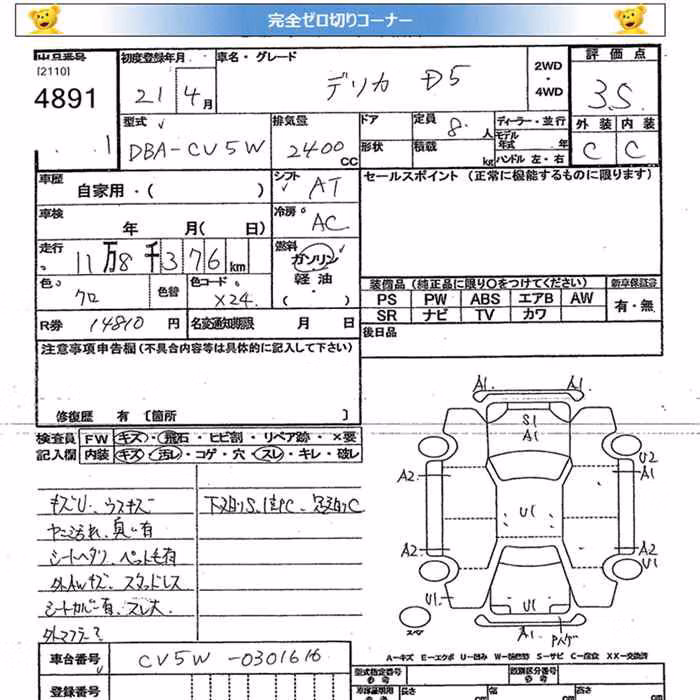 完全ゼロ切りコーナー
[2110]
4891
1
初度登録年月
21 4月
車名・グレード
デリカ D5
2WD
・
4WD
評価点
3.5
型式
DBA-CV5W
排気量
2400 CC
ドア
形状
定員 8人
積載 kg
ディーラー・並行
モデル年式 年
ハンドル 左・右
外装 内装
C C
車歴
自家用・( )
シフト AT
セールスポイント (正常に機能するものに限ります)
車検
年 月( 日)
冷房 AC
走行
11万8千376km
燃料
ガソリン
軽油
( ・ )
色 クロ
色替
色コード X24
装備品 (純正品に限り○をつけてください)
新車保証書
PS PW ABS エアB AW
SR ナビ TV カワ
有・無
R券 14810円
名変通知期限 月 日
後日品
注意事項申告欄 (不具合内容等は具体的に記入して下さい)
修復歴 有 〔箇所 〕
検査員
記入欄
FW キズ・飛石・ヒビ割・リペア跡・×要
内装 キズ・汚レ・コゲ・穴・スレ・キレ・破レ
キズU、ウスキズ
下廻りS
ヤニ汚れ、臭い有
シートヘタリ、ペット毛有
外AWキズ、スタッドレス
シートカバー有、スレ大
外マフラー
A1 A1
S1
A1
U2
A2 A1
U1
A2 A2
U1
U1 U1
スペア A1
A-キズ E-エクボ U-凹み W-補修跡 S-サビ C-腐食 XX-交換済
車台番号 CV5W-0301616
登録番号
型式指定番号
類別区分番号
長さ 幅 高さ